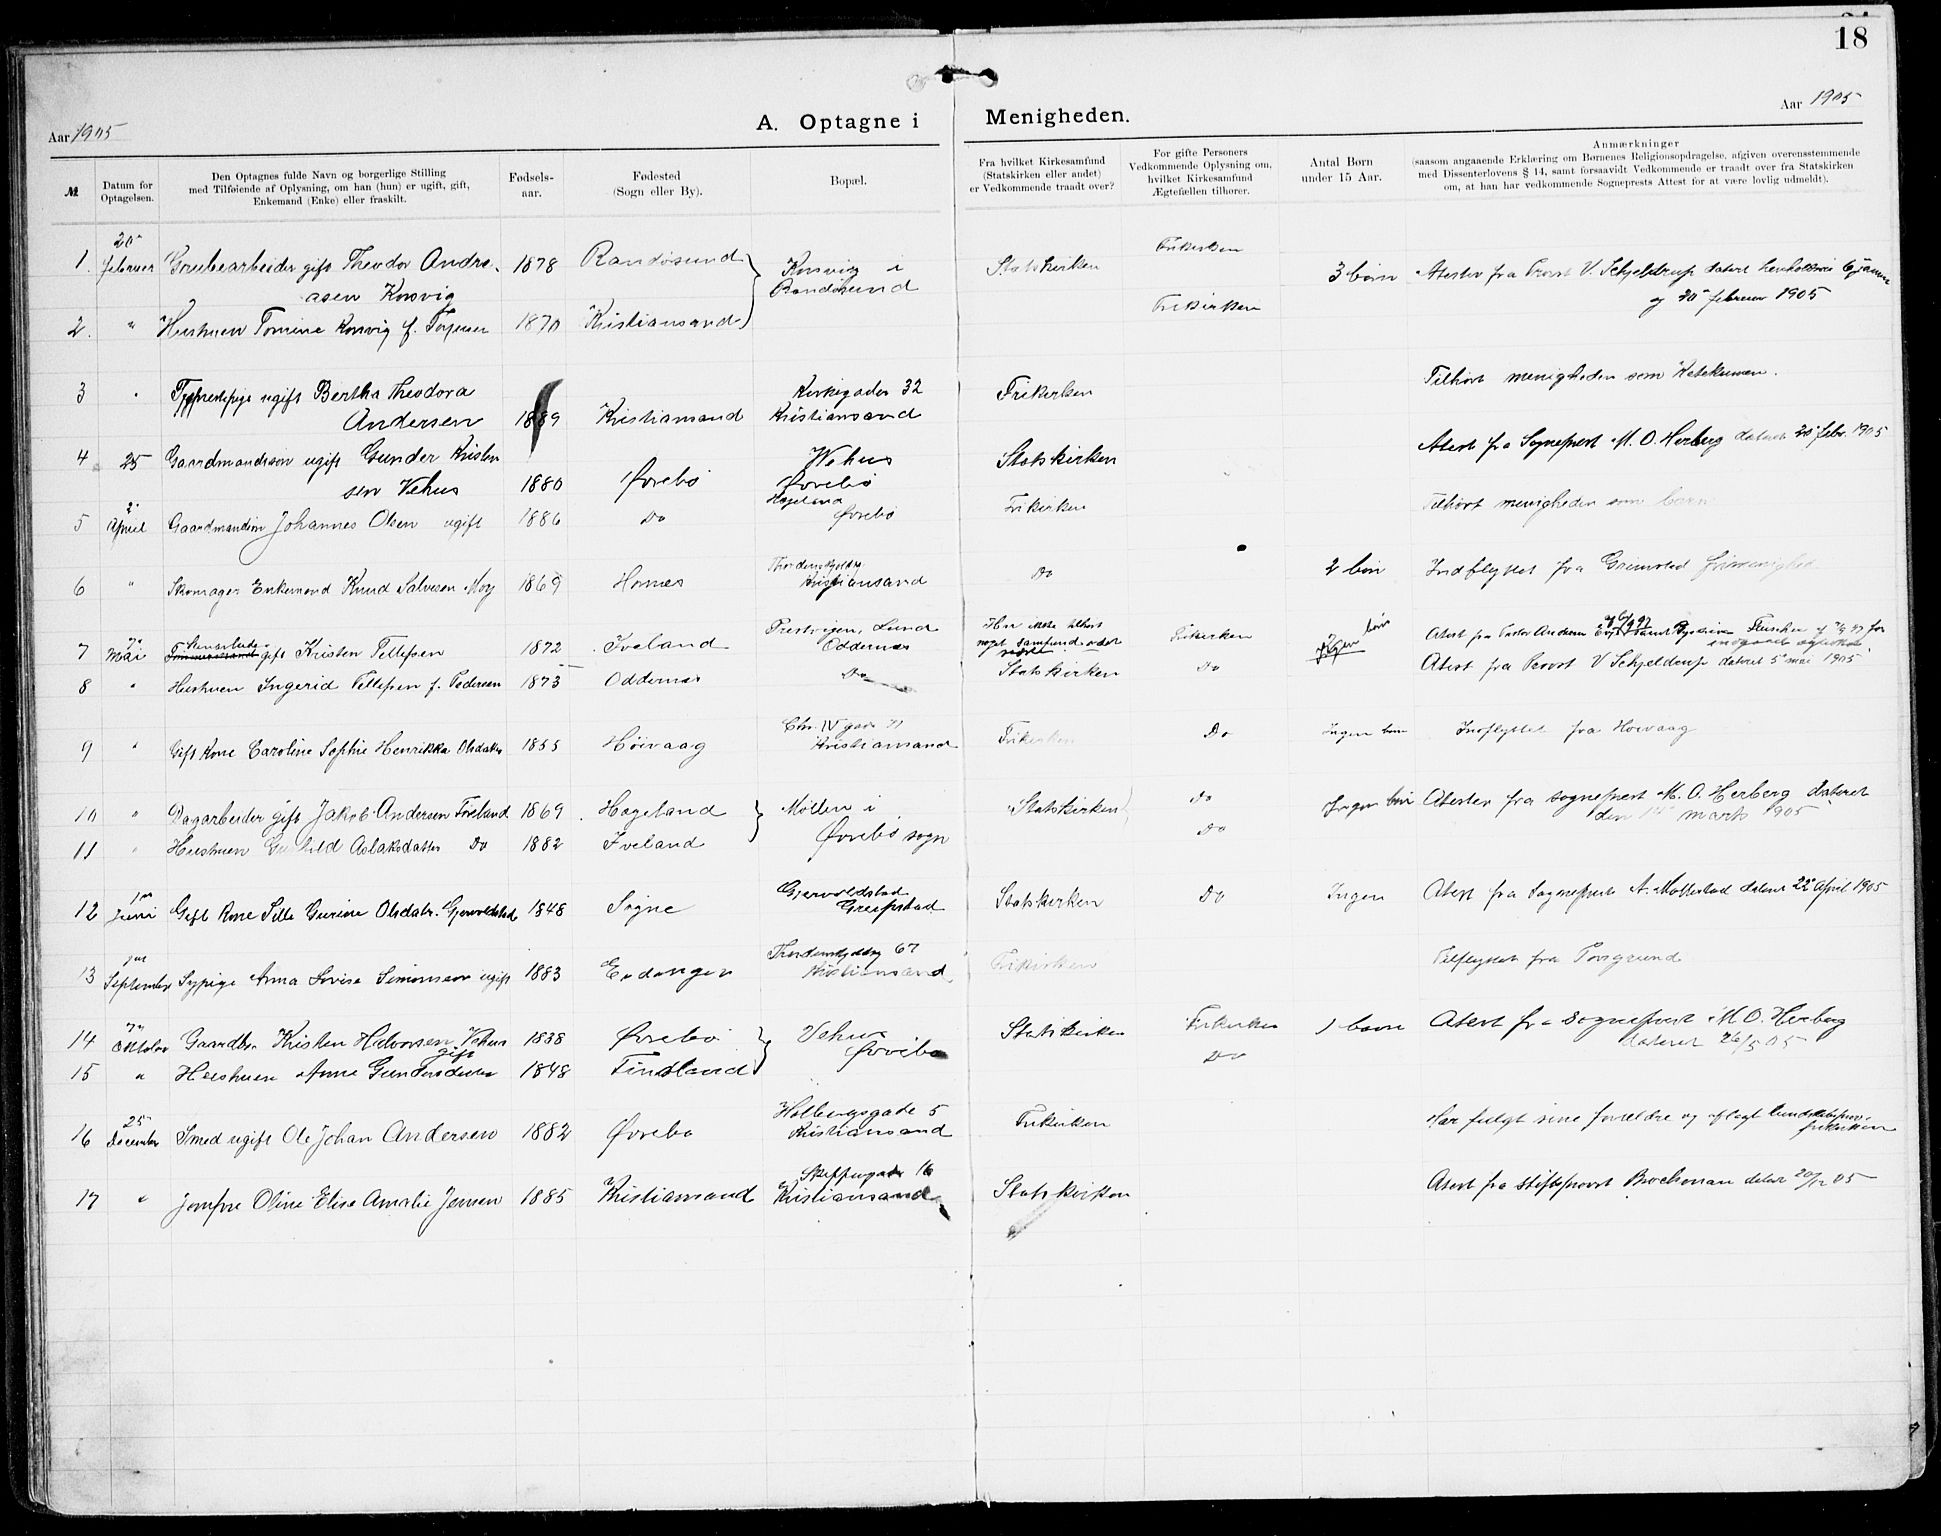 18
Aar 1905
A. Optagne i Menigheden.
Aar 1905
№
Datum for Optagelsen.
Den Optagnes fulde Navn og borgerlige Stilling
med Tilføiende af Oplysning, om han (hun) er ugift, gift,
Enkemand (Enke) eller fraskilt.
Fødsels-
aar.
Fødested
(Sogn eller By).
Bopæl.
Fra hvilket Kirkesamfund
(Statskirken eller andet)
er Vedkommende traadt over?
For gifte Personers
Vedkommende Oplysning om,
hvilket Kirkesamfund
Ægtefællen tilhører.
Antal Børn
under 15 Aar.
Anmærkninger
(saasom angaaende Erklæring om Børnenes Religionsopdragelse, afgiven overensstemmende
med Dissenterlovens § 14, samt forsaavidt Vedkommende er traadt over fra Statskirken
om, at han har vedkommende Sogneprests Attest for at være lovlig udmeldt).
1. 20 februer Grubearbeider gift Theodor Andre- 1878 Randøsund Korsvig i Statskirken Frikirken 3 børn Atester fra Provst V. Schjeldrup datert
asen Korsvig Randøsund og 20 februar 1905
2. " Hustruen Tomine Korsvig f. 1870 Kristiansand Frikirken
3 " ugift Bertha Theodora Kirkegaden 32 Frikirken Tilhørt menigheden som Katekumen.
Andersen 1889 Kristiansand Kristiansand
4 25 Gaardmandssøn ugift Gunder Kristen Vehus Statskirken Atest fra Sogneprest M. O. Herberg dateret 20 febr. 1905
sen Vehus 1880 Øvrebø Øvrebø
5 2 April Gaardmandssøn Johannes Olsen ugift 1886 Do Hægeland Øvrebø Frikirken Tilhørt menigheden som barn
6 " Skomager Enkemand Knud Salvesen Moy 1869 Hornes Kristiansand Do 2 børn Indflyttet fra Grimstad frimenighed
7 7 Mai gift Kristen Tellefsen 1872 Iveland Prestvigen, Lund Oddernes Har ikke tilhørt noget samfund Frikirken Ingen børn Atest fra Pastor Andersen
8 " Hustruen Ingerid Tellefsen f. Pedersen 1873 Oddernes Do Statskirken Do Atest fra Provst V Schjeldrup dateret 5 mai 1905
9 " Gift Kone Caroline Sophie Henrikka Olsdatter 1855 Høivaag Chr. IV gade 77 Kristiansand Frikirken Do Ingen børn Indflyttet fra Høivaag
10 " Dagarbeider gift Jakob Andersen Iveland 1869 Hægeland Mollen i Statskirken Do Ingen børn Atester fra sogneprest M. O. Herberg dateret
den 14 marts 1905
11 " Hustruen Gunhild Aslaksdatter Do 1882 Iveland Øvrebø sogn Do
12 1ste Juni Gift Kone Sille Gurine Olsdatr. Gjervoldstad 1848 Søgne Gjervoldstad Greipstad Statskirken Do Ingen Atest fra Sogneprest A. Mollestad dateret 22 April 1905
13 September Sypige Anna Lovise Simonsen ugift 1883 Eidanger 67 Kristiansand Frikirken Tilflyttet fra Porsgrund
14 7 Oktober Gaardbr. Kristen Halvorsen Vehus gift 1838 Øvrebø Vehus Statskirken Frikirken 1 barn Atest fra sogneprest M O. Herberg
dateret 26/5 05
15 " Hustruen Anne Gundersdatter 1848 Finsland Øvrebø Do
16 25 December Smed ugift Ole Johan Andersen 1882 Øvrebø Holbergsgade 5 Kristiansand Frikirken Har fulgt sine forældre og aflagt kundskabsprøve i frikirken
17 " Jomfru Oline Elise Amalie Jensen 1885 Kristiansand Skippergade 16 Kristiansand Statskirken Atest fra stiftsprovst datert 20/12 05